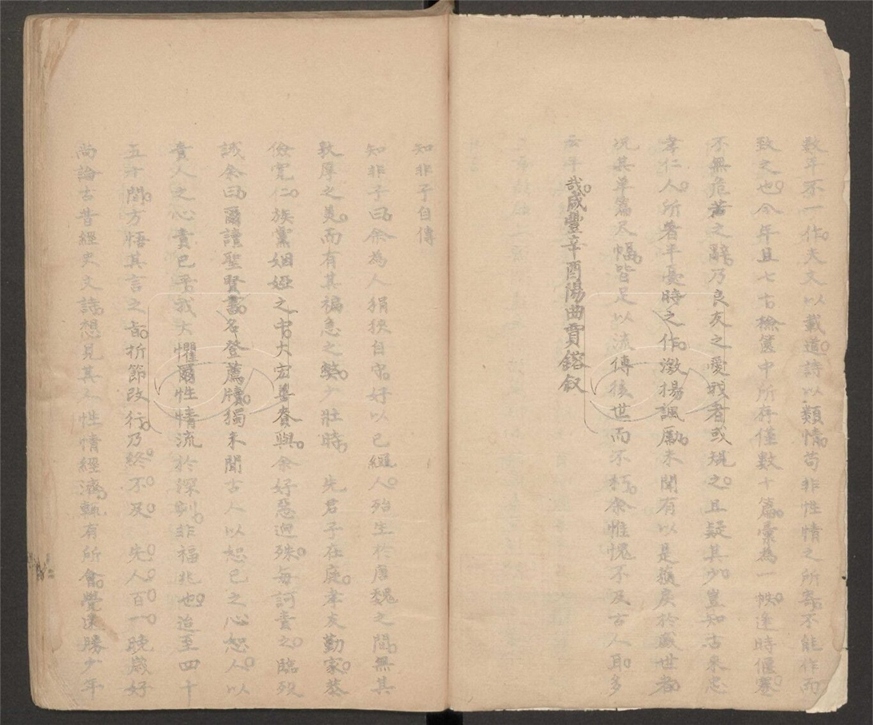 數年不一作夫文以載道詩以類情苟非性情之所寄不能作而
致之也今年且七十檢篋中所存僅數十篇彙為一帙逢時偃蹇
不無危苦之辭乃良友之愛我者或規之且疑其少豈知古來忠
孝仁人所著半憂時之作激揚諷厲未聞有以是獲戾於盛世者
況其單篇尺幅皆足以流傳後世而不朽余惟愧不及古人耳多
云乎哉咸豐辛酉陽曲賈鎔叙
知非子自傳
知非子曰余為人狷狹自守好以己繩人殆生於唐魏之間無其
敦厚之美而有其褊急之弊少壯時先君子在庭孝友勤家恭
儉寬仁族黨姻婭之中大
誡余曰爾讀聖賢書名登薦牘獨未聞古人以恕己之心恕人以
責人之心責己乎我大懼爾性情流於深刻非福兆也迨至四十
五十間方悟其言之旨折節改行乃終不及先人百一晚歲好
尚論古昔經史文詩想見其人性情經濟輒有所會覺遠勝少年